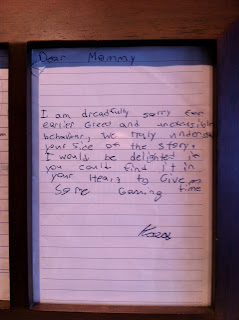 Dear Mommy
I am dreadfully sorry for
earlier Greed and
behaviour, we truly
your side of the story,
I would be delighted if
you could find it in
your hearts to Give us
Some Gaming time